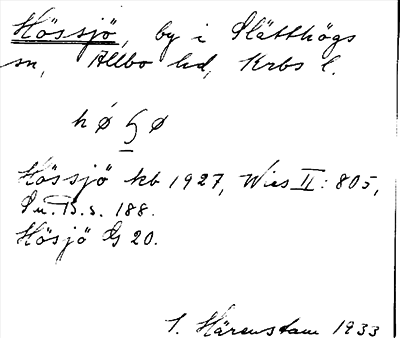 Hössjö, by i Slätthögs
sn, Allbo hd, Krbs l.
Hössjö kb 1927, Wies II: 805,
Su.B.s. 188.
Hösjö G 20.
I. Härenstam 1933